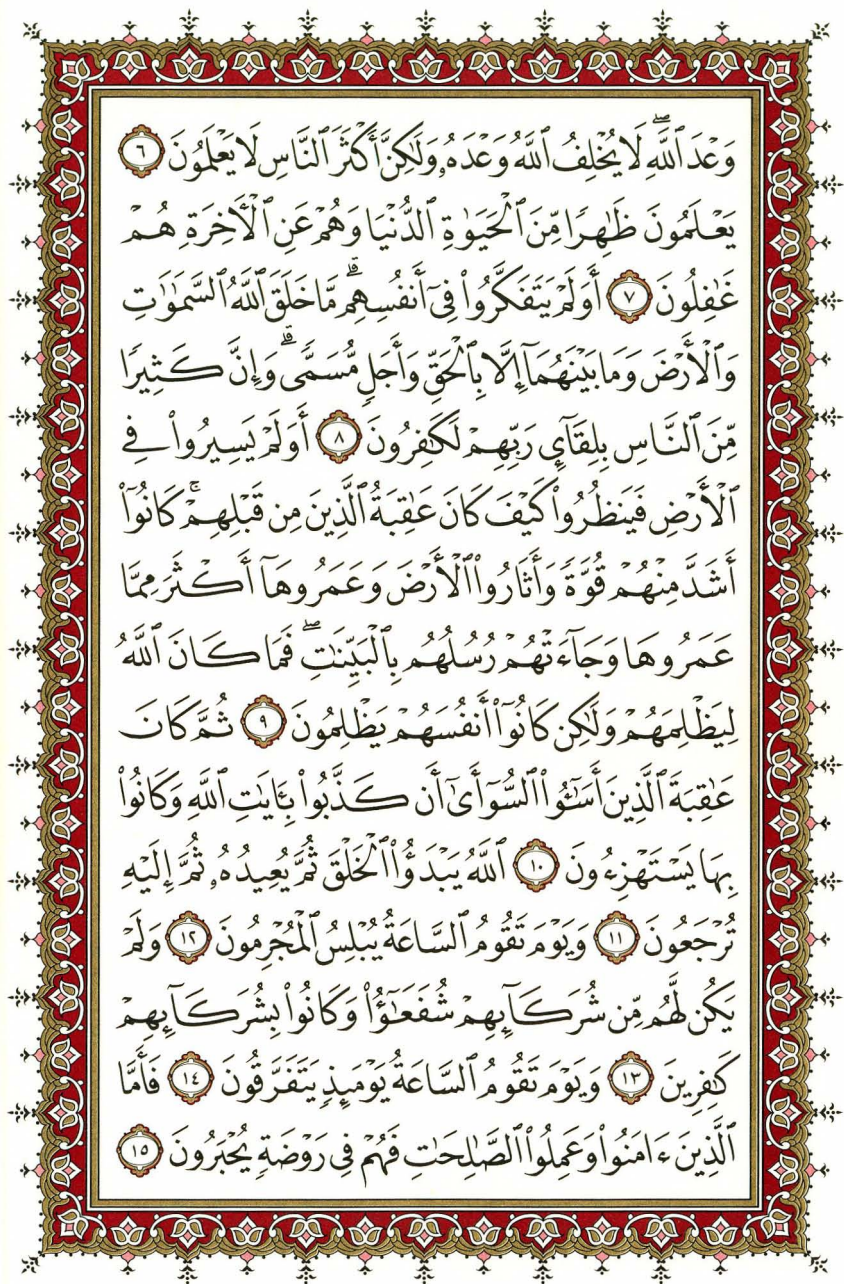 وَعْدَ ٱللَّهِ ۖ لَا يُخْلِفُ ٱللَّهُ وَعْدَهُۥ وَلَٰكِنَّ أَكْثَرَ ٱلنَّاسِ لَا يَعْلَمُونَ ٦
يَعْلَمُونَ ظَٰهِرًا مِّنَ ٱلْحَيَوٰةِ ٱلدُّنْيَا وَهُمْ عَنِ ٱلْءَاخِرَةِ هُمْ
غَٰفِلُونَ ٧ أَوَلَمْ يَتَفَكَّرُوا۟ فِىٓ أَنفُسِهِم ۗ مَّا خَلَقَ ٱللَّهُ ٱلسَّمَٰوَٰتِ
وَٱلْأَرْضَ وَمَا بَيْنَهُمَآ إِلَّا بِٱلْحَقِّ وَأَجَلٍ مُّسَمًّى ۗ وَإِنَّ كَثِيرًا
مِّنَ ٱلنَّاسِ بِلِقَآئِ رَبِّهِمْ لَكَٰفِرُونَ ٨ أَوَلَمْ يَسِيرُوا۟ فِى
ٱلْأَرْضِ فَيَنظُرُوا۟ كَيْفَ كَانَ عَٰقِبَةُ ٱلَّذِينَ مِن قَبْلِهِمْ ۚ كَانُوٓا۟
أَشَدَّ مِنْهُمْ قُوَّةً وَأَثَارُوا۟ ٱلْأَرْضَ وَعَمَرُوهَآ أَكْثَرَ مِمَّا
عَمَرُوهَا وَجَآءَتْهُمْ رُسُلُهُم بِٱلْبَيِّنَٰتِ ۖ فَمَا كَانَ ٱللَّهُ
لِيَظْلِمَهُمْ وَلَٰكِن كَانُوٓا۟ أَنفُسَهُمْ يَظْلِمُونَ ٩ ثُمَّ كَانَ
عَٰقِبَةَ ٱلَّذِينَ أَسَٰٓـُٔوا۟ ٱلسُّوٓأَىٰٓ أَن كَذَّبُوا۟ بِـَٔايَٰتِ ٱللَّهِ وَكَانُوا۟
بِهَا يَسْتَهْزِءُونَ ١٠ ٱللَّهُ يَبْدَؤُا۟ ٱلْخَلْقَ ثُمَّ يُعِيدُهُۥ ثُمَّ إِلَيْهِ
تُرْجَعُونَ ١١ وَيَوْمَ تَقُومُ ٱلسَّاعَةُ يُبْلِسُ ٱلْمُجْرِمُونَ ١٢ وَلَمْ
يَكُن لَّهُم مِّن شُرَكَآئِهِمْ شُفَعَٰٓؤُا۟ وَكَانُوا۟ بِشُرَكَآئِهِمْ
كَٰفِرِينَ ١٣ وَيَوْمَ تَقُومُ ٱلسَّاعَةُ يَوْمَئِذٍ يَتَفَرَّقُونَ ١٤ فَأَمَّا
ٱلَّذِينَ ءَامَنُوا۟ وَعَمِلُوا۟ ٱلصَّٰلِحَٰتِ فَهُمْ فِى رَوْضَةٍ يُحْبَرُونَ ١٥